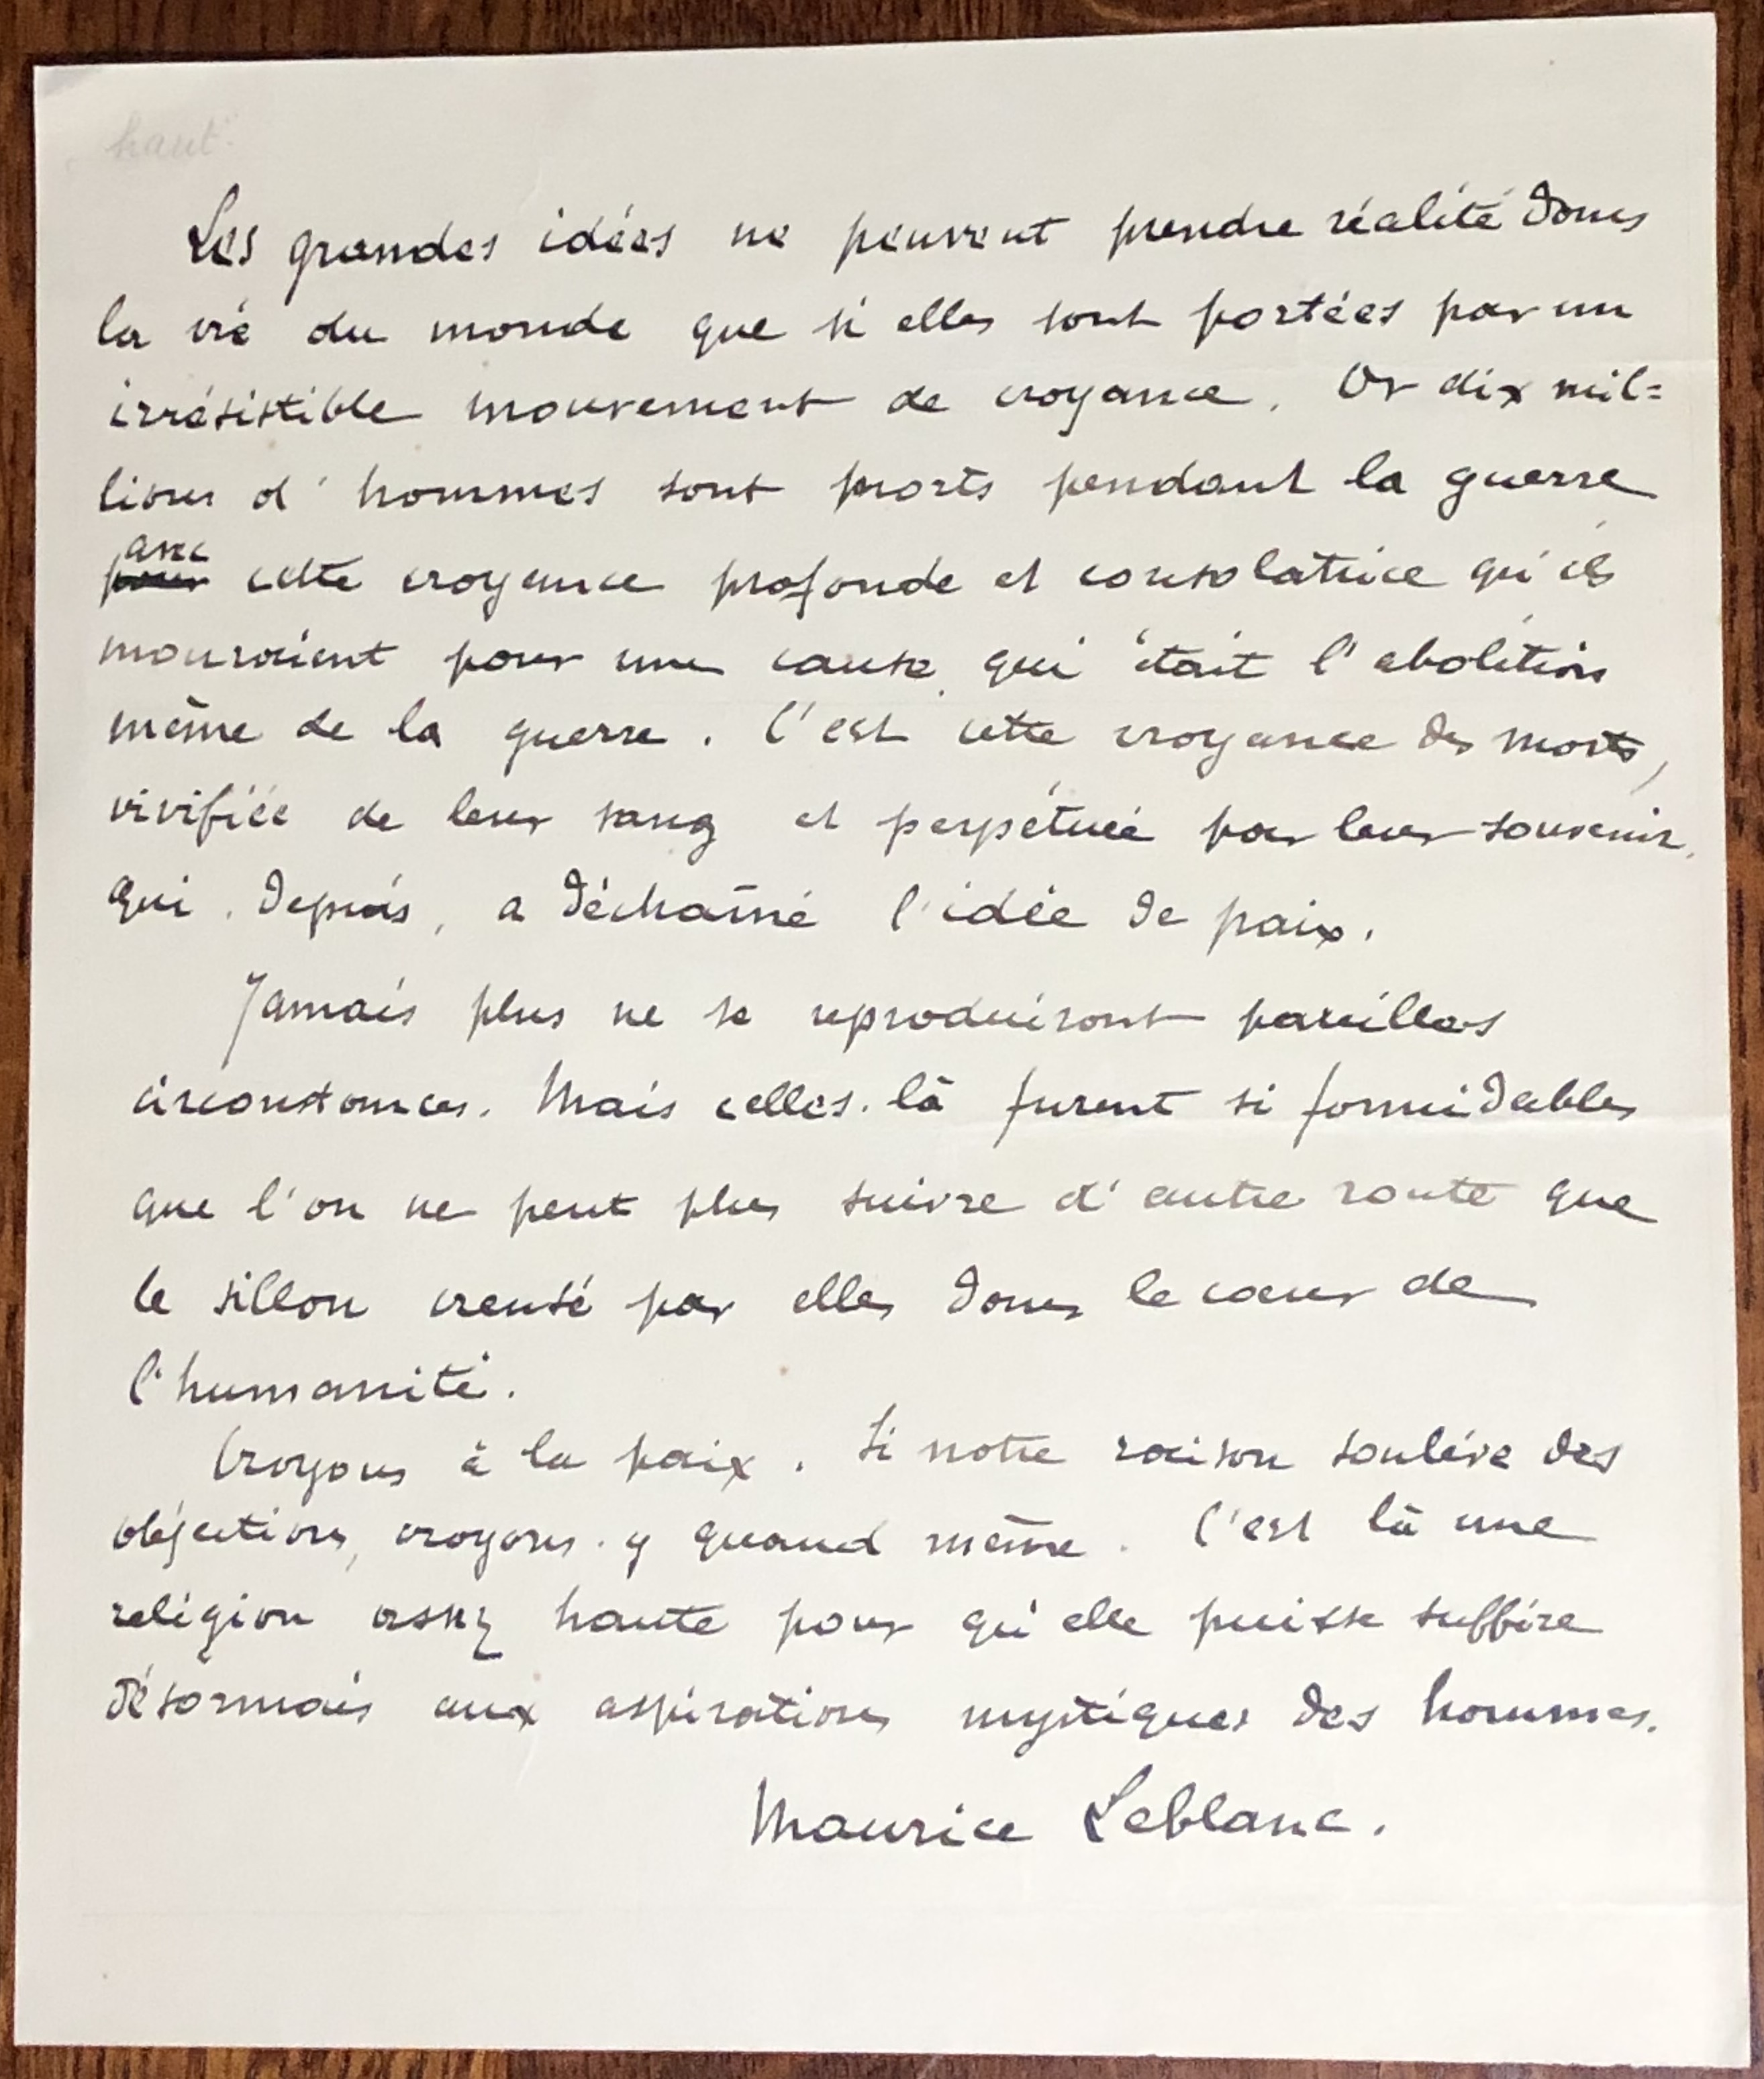 "haut"
Les grandes idées ne peuvent prendre réalité dans
la vie du monde que si elles sont portées par un
irrésistible mouvement de croyance. Or dix mil=
lions d'hommes sont morts pendant la guerre
avec
pour cette croyance profonde et consolatrice qu'ils
mouraient pour une cause qui était l'abolition
même de la guerre. C'est cette croyance des morts,
vivifiée de leur sang et perpétuée par leur souvenir,
qui, depuis, a déchaîné l'idée de paix.
Jamais plus ne se reproduiront pareilles
circonstances. Mais celles-là furent si formidables
que l'on ne peut plus suivre d'autre route que
le sillon creusé par elles dans le coeur de
l'humanité.
Croyons à la paix. Si notre raison soulève des
objections, croyons-y quand même. C'est là une
religion assez haute pour qu'elle puisse suffire
désormais aux aspirations mystiques des hommes.
Maurice Leblanc.